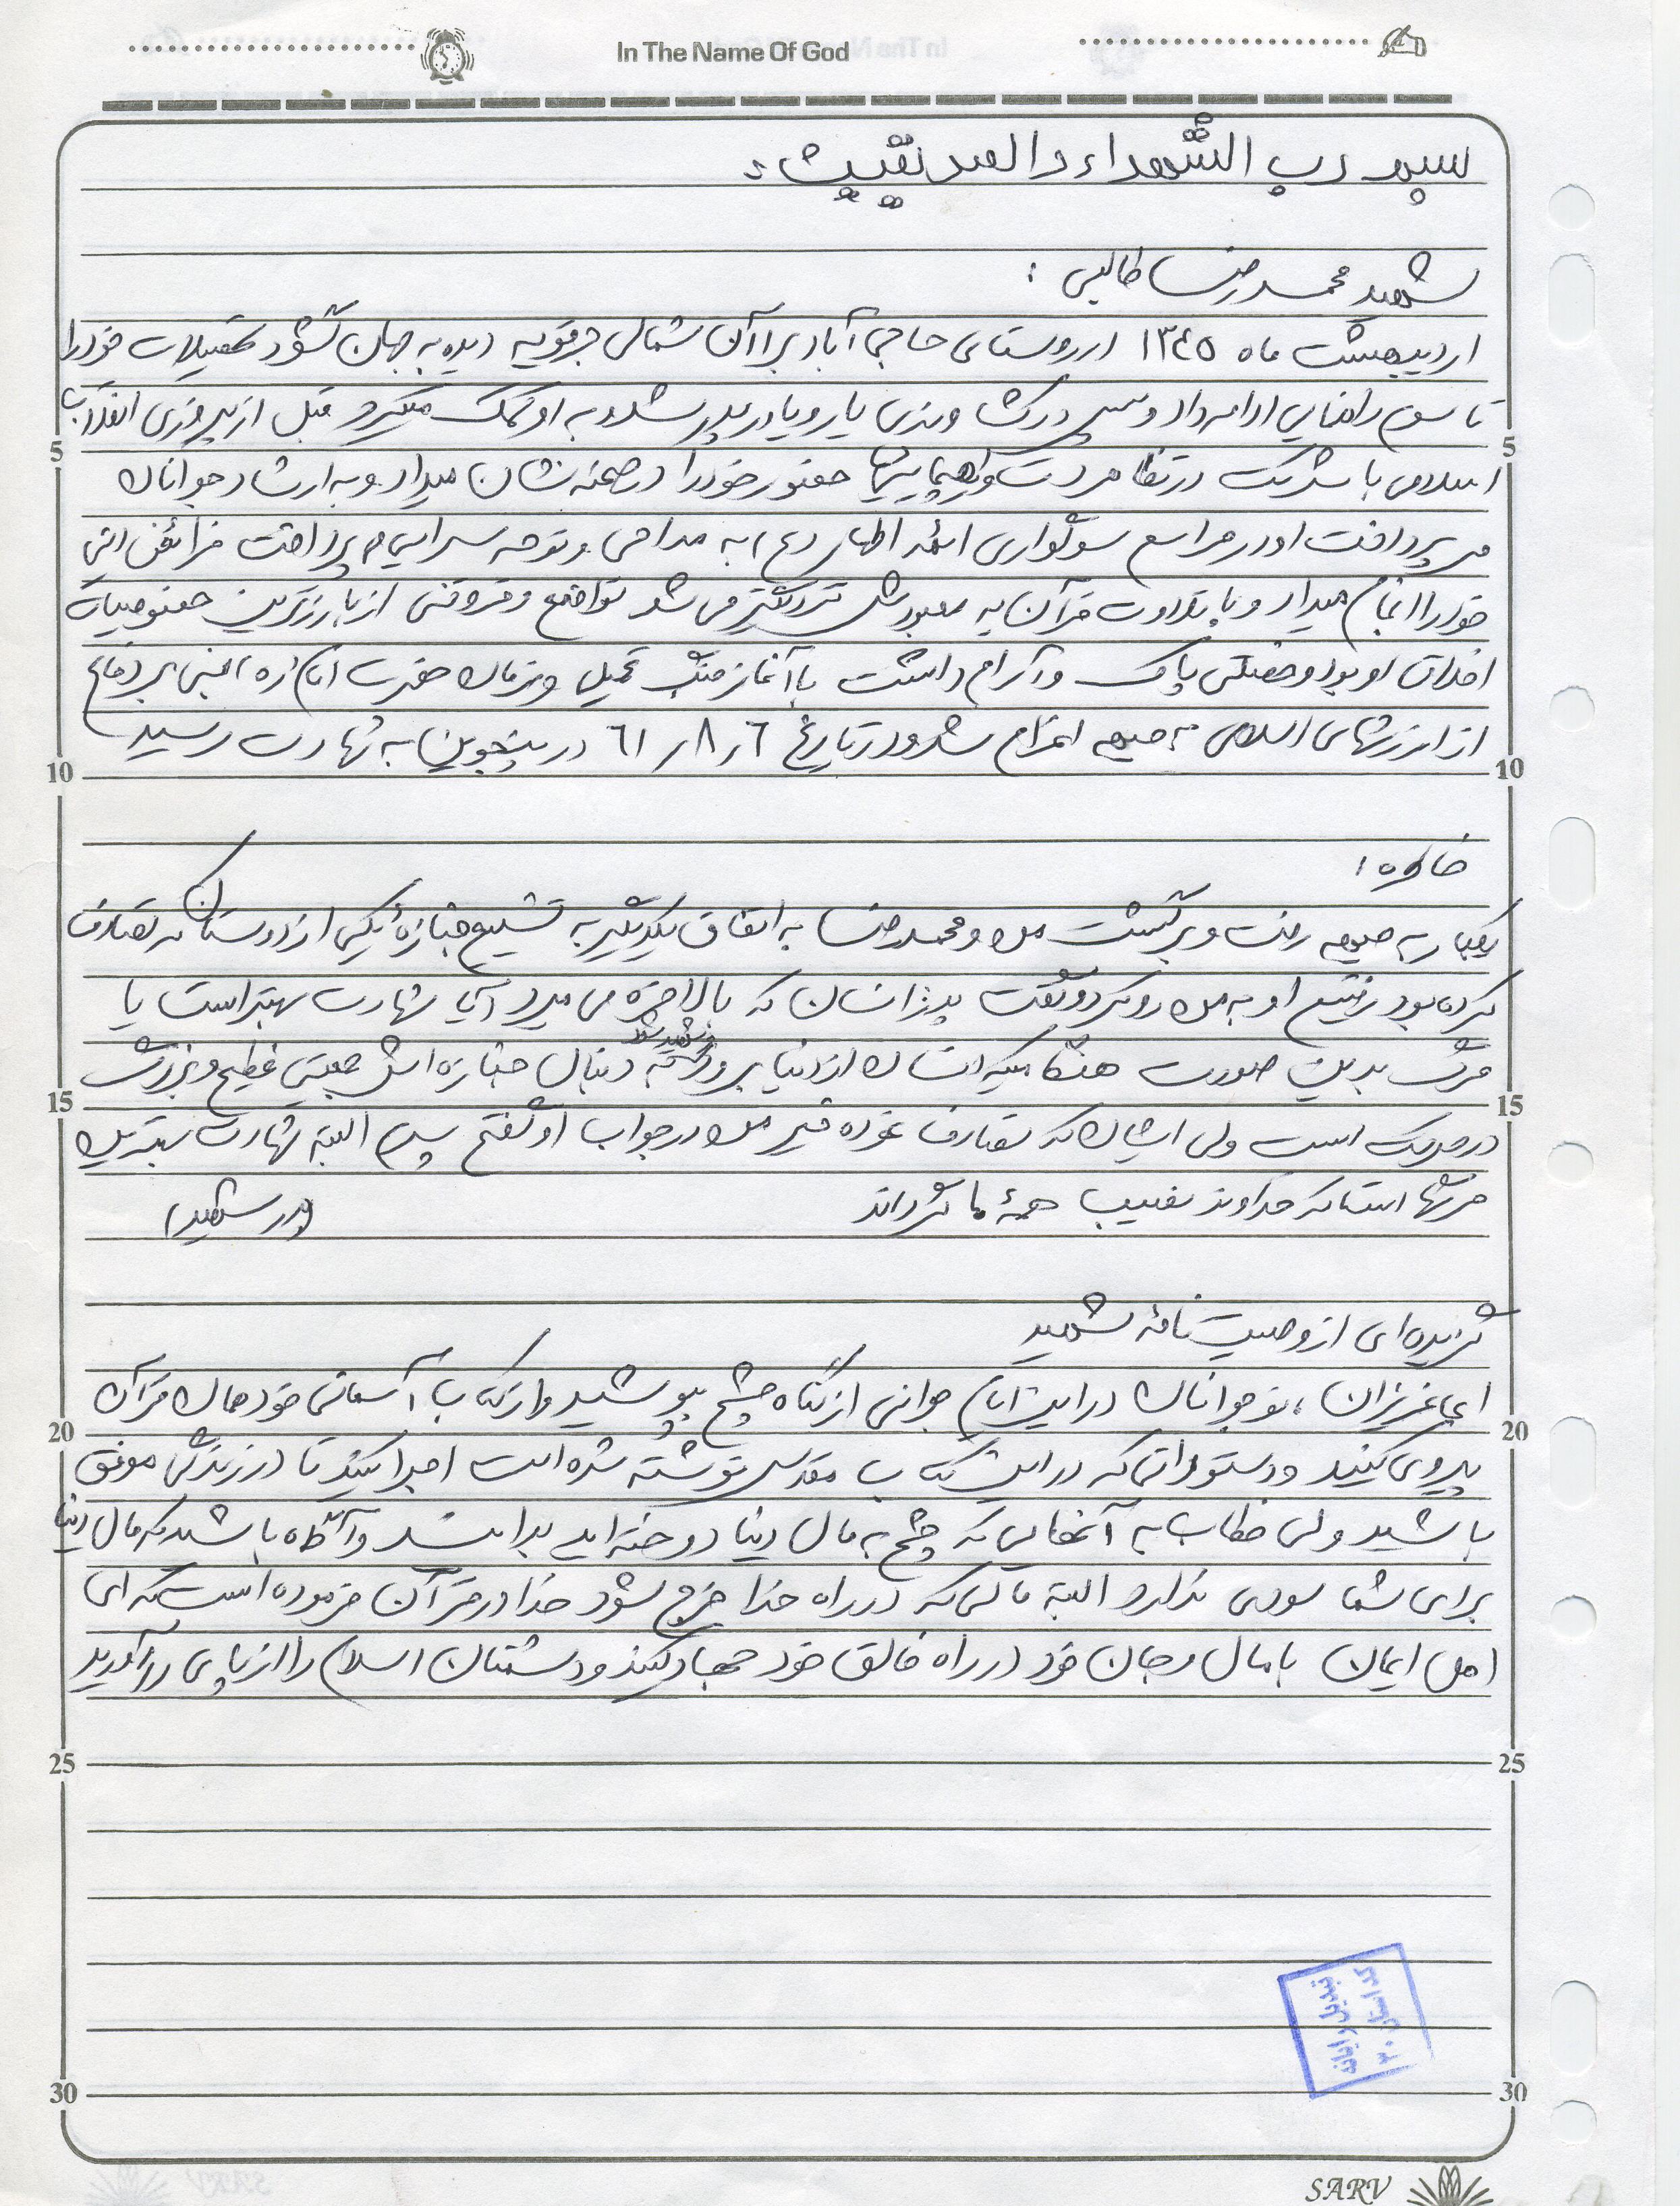 In The Name Of God
بسم رب الشهداء والصدیقین:
شهید محمدرضا طالبی:
اردیبهشت ماه ۱۳۴۵ در روستای حاجی آباد براآن شمالی جرقویه دیده به جهان گشود تحصیلات خود را
تا سوم راهنمایی ادامه داد و سپس در کشاورزی یار و یاور پدر شد و به او کمک میکرد قبل از پیروزی انقلاب
اسلامی با شرکت در تظاهرات و راهپیمایی‌ها حضور خود را در صحنه نشان میداد و به ارشاد جوانان
می پرداخت او در مراسم سوگواری ائمه اطهار (ع) به مداحی و نوحه سرایی می پرداخت فرائض الهی
خود را انجام میداد و با تلاوت قرآن به معبودش نزدیکتر می شد تواضع و فروتنی از بارزترین خصوصیات
اخلاق او بود و خصلتی پاک و آرام داشت با آغاز جنگ تحمیلی و فرمان حضرت امام (ره) مبنی بر دفاع
از ارزشهای اسلامی به جبهه اعزام شد و در تاریخ ۶/۸/۶۱ در پنجوین به شهادت رسید
خاطره ۱
یکبار به جبهه رفت و برگشت من و محمدرضا به اتفاق یکدیگر به تشییع جنازهٔ یکی از دوستان که تصادف
کرده بود رفتیم او به من رو کرد و گفت پدر انسان که بالاخره می میرد آیا شهادت بهتر است یا
مرگ بدین صورت هنگامیکه انسان از دنیا برود و شهید شود دنبال جنازه اش جمعیتی عظیم و بزرگ
در حرکت است ولی ایشان که تصادف نموده خیر من در جواب او گفتم پسرم البته شهادت بهترین
مرگها است که خداوند نصیب همهٔ ما گرداند (پدر شهید)
گزیده ای از وصیت نامهٔ شهید
ای عزیزان، نوجوانان در این ایام جوانی از گناه چشم بپوشید و از کتاب آسمانی خود همان قرآن
پیروی کنید و دستوراتی که در این کتاب مقدس نوشته شده است اجرا کنید تا در زندگی موفق
باشید ولی خطاب به آنهایی که چشم به مال دنیا دوخته اید بدانید و آگاه باشید که مال دنیا
برای شما سودی ندارد البته مالی که در راه خدا خرج شود خدا در قرآن فرموده است که ای
اهل ایمان با مال و جان خود در راه خالق خود جهاد کنید و دشمنان اسلام را از پای درآورید
5
5
10
10
15
15
20
20
25
25
30
30
SARV